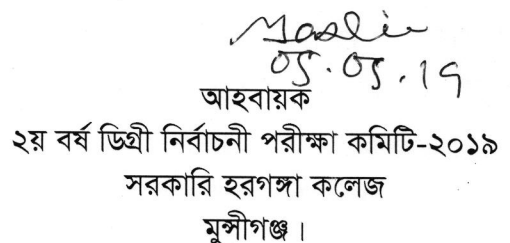 05.05.19
আহবায়ক
২য় বর্ষ ডিগ্রী নির্বাচনী পরীক্ষা কমিটি-২০১৯
সরকারি হরগঙ্গা কলেজ
মুন্সীগঞ্জ।